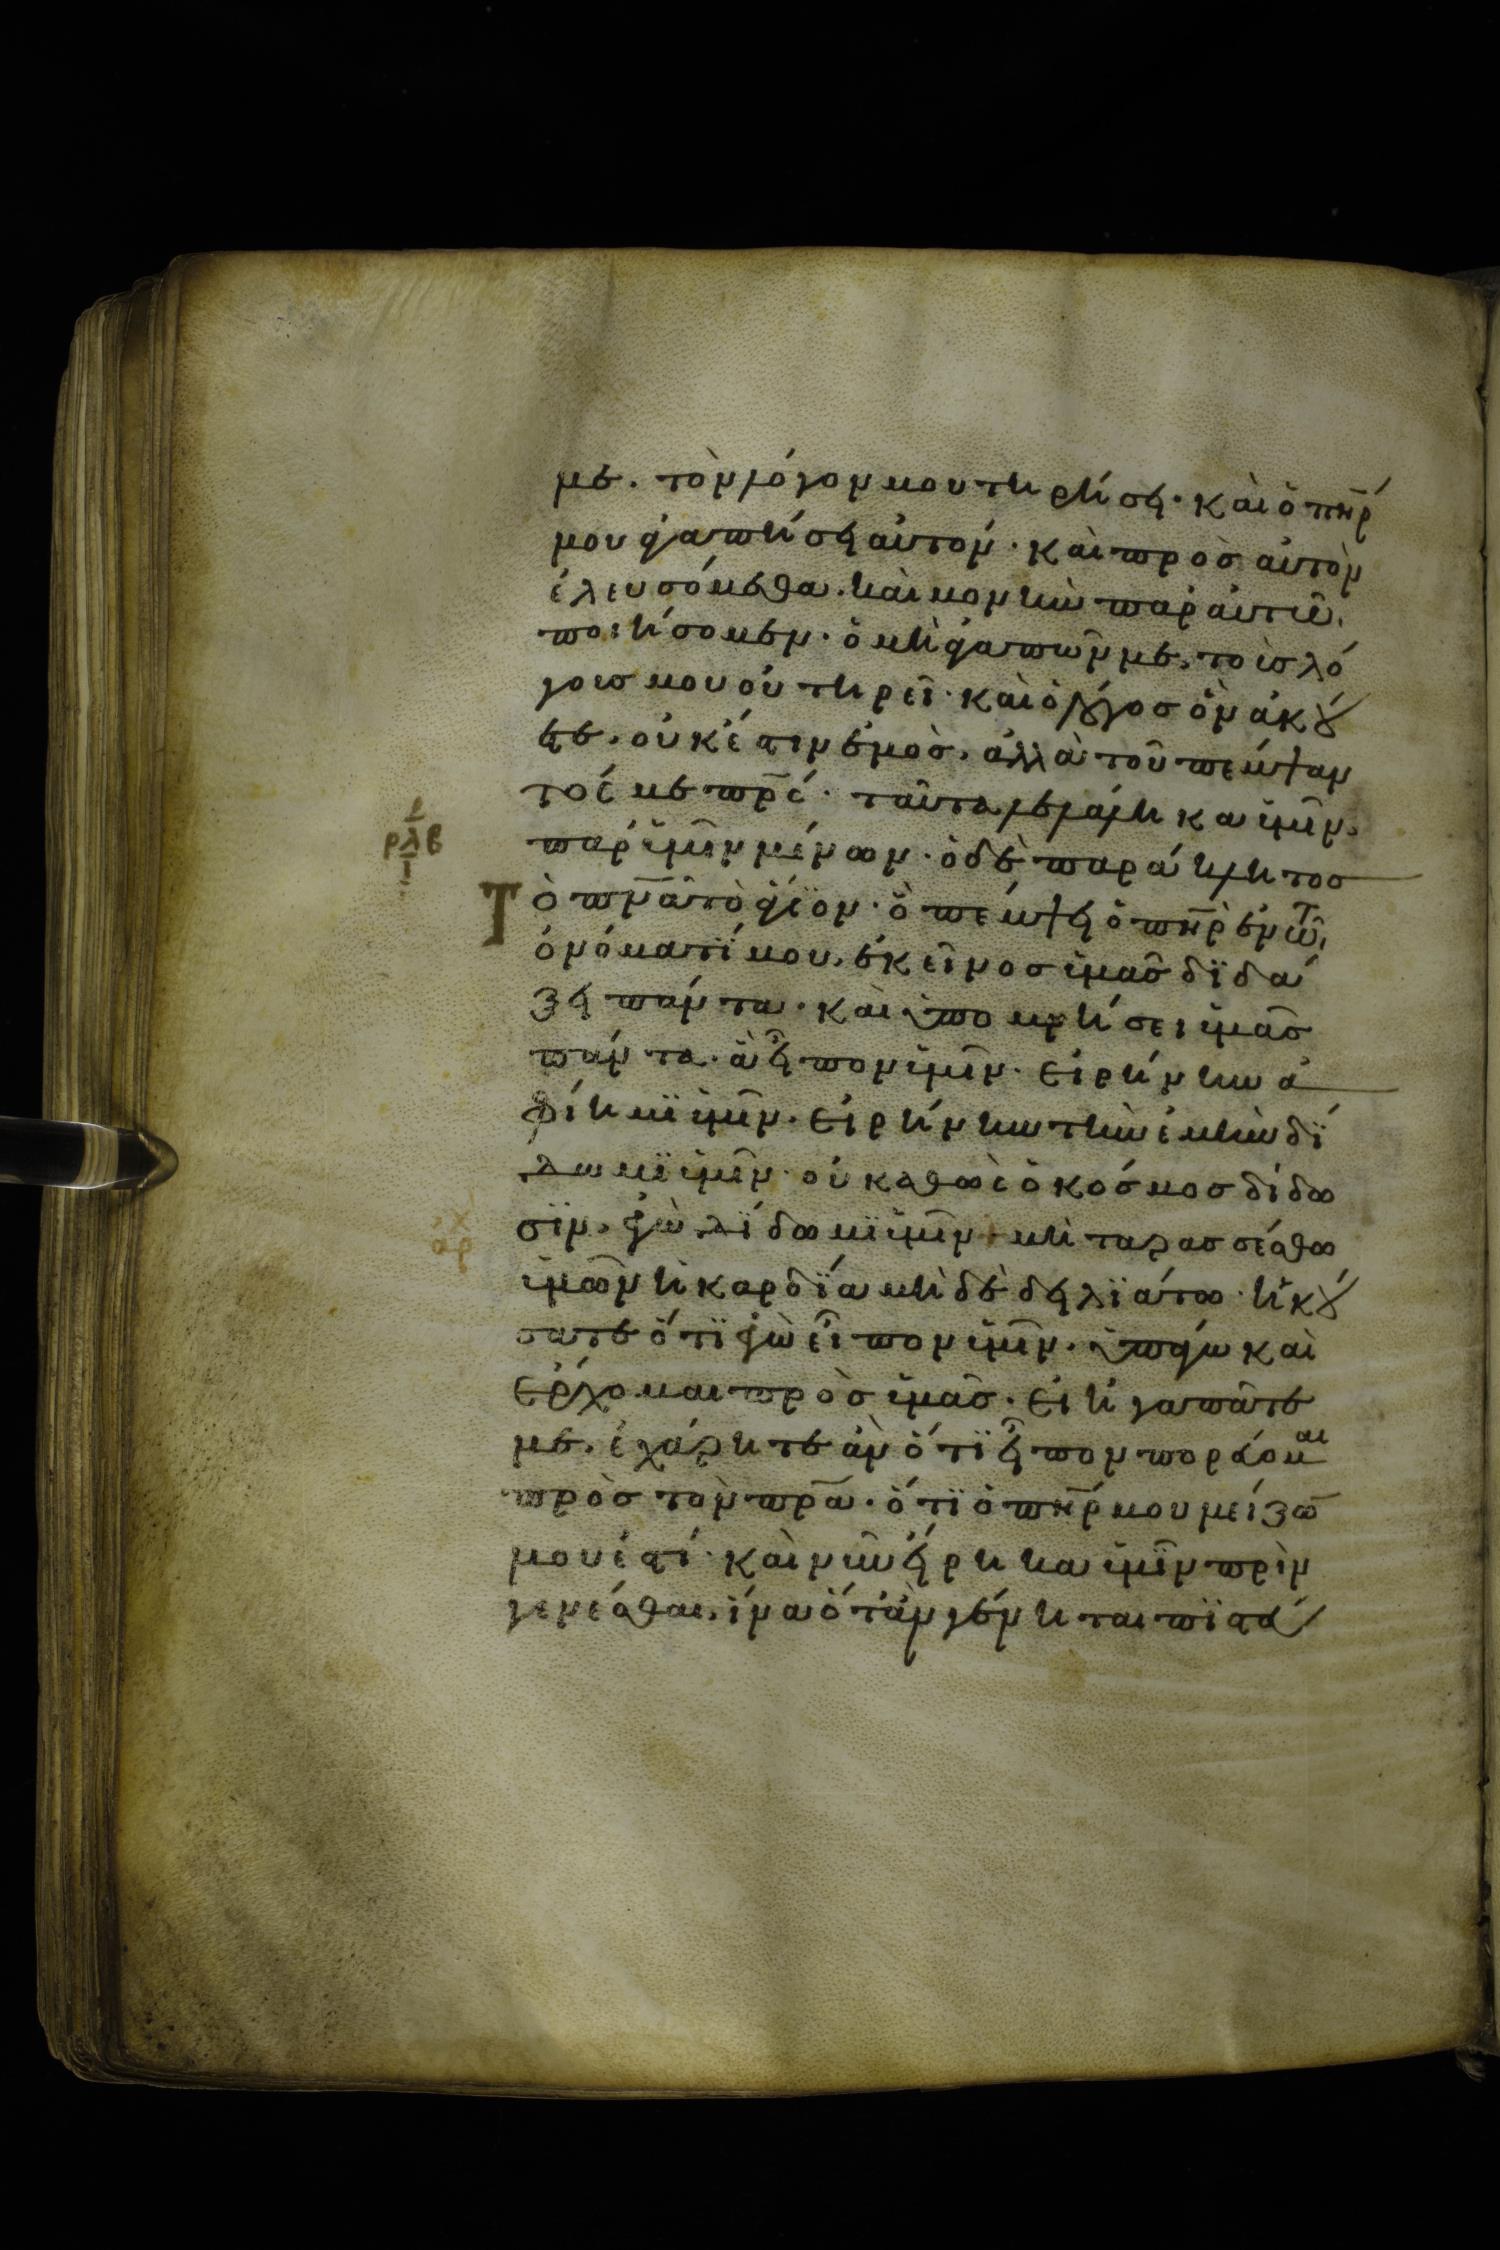 με. τὸν λόγον μου τηρήση. καὶ ὁ πηρ
μου ἀγαπήσει αὐτόν. καὶ πρὸς αὐτὸν
ἐλευσόμεθα. καὶ μονὴν παρ' αὐτῶ.
ποιήσομεν. ὁ μὴ ἀγαπῶν με. τοὺς λό
γους μου οὐ τηρεῖ. καὶ ὁ λόγος ὃν ἀκού
ετε. οὐκ ἔστιν ἐμὸς. ἀλλὰ τοῦ πέμψαν
τός με πρς. ταῦτα λελάληκα ὑμῖν.
παρ' ὑμῖν μένων. ὁ δὲ παράκλητος
Τὸ πνα τὸ ἅγιον. ὃ πέμψει ὁ πηρ ἐν τῶ
ὀνόματί μου. ἐκεῖνος ὑμᾶς διδά
ξει πάντα. καὶ ὑπομνήσει ὑμᾶς
πάντα. ἃ εἶπον ὑμῖν. εἰρήνην ἀ
φίημι ὑμῖν. εἰρήνην τὴν ἐμὴν δί
δωμι ὑμῖν. οὐ καθὼς ὁ κόσμος δίδω
σιν. ἐγὼ δίδωμι ὑμῖν. μὴ ταρασσέσθω
ὑμῶν ἡ καρδία μὴ δὲ δειλιάτω. ἠκού
σατε ὅτι ἐγὼ εἶπον ὑμῖν. ὑπάγω καὶ
ἔρχομαι πρὸς ὑμᾶς. εἰ ἠγαπᾶτε
με. ἐχάρητε ἂν ὅτι εἶπον πορεύομαι
πρὸς τὸν πρα. ὅτι ὁ πηρ μου μείζω
μου ἐστί. καὶ νῦν εἴρηκα ὑμῖν πρὶν
γενέσθαι. ἵνα ὅταν γένηται πιστεύ
ρλβ
ι